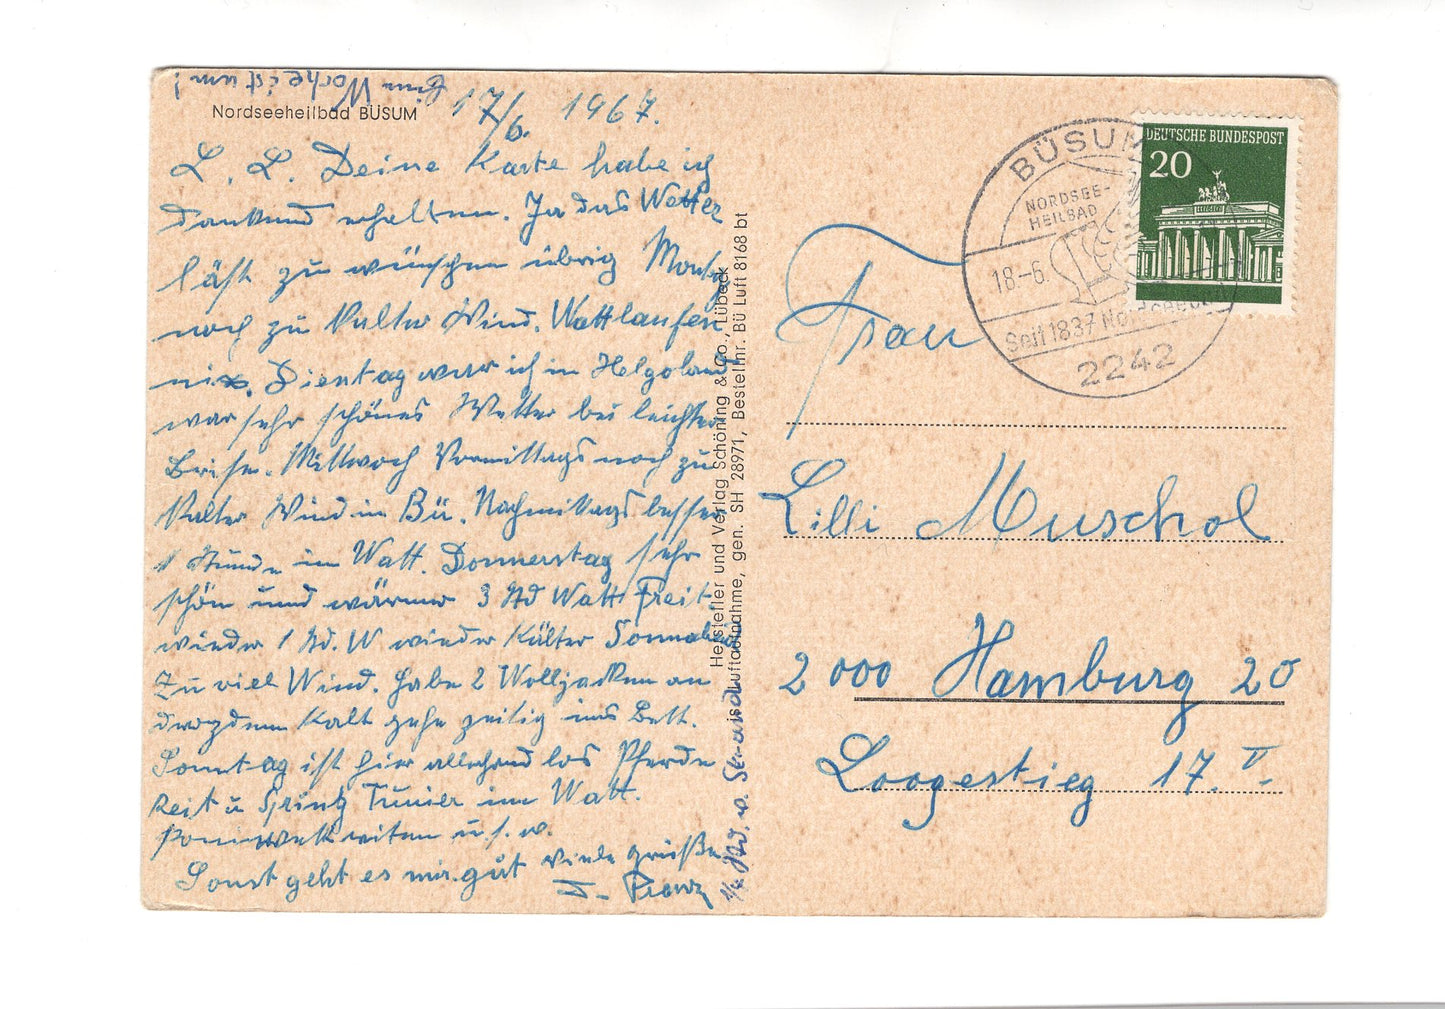 Eine Woche ist um!
Nordseeheilbad BÜSUM
17/6. 1967.
L. L. Deine Karte habe ich
dankend erhalten. Ja das Wetter
läßt zu wünschen übrig Montag
noch zu kalter Wind. Wattlaufen
nix. Dienstag war ich in Helgoland
war sehr schönes Wetter bei leichter
Brise. Mittwoch Vormittags noch zu
kalter Wind in Bü. Nachmittags besser
1 Stunde im Watt. Donnerstag sehr
schön und wärmer 3 Std Watt Freit.
wieder 1 Std. W wieder kälter Sonnabend
zu viel Wind. habe 2 Wolljacken an
drozdem kalt gehe zeitig ins Bett.
Sonntag ist hier allerhand los Pferde
Reit u Spring Turnier im Watt.
u. s. w.
Sonst geht es mir gut viele grüße
1/2 Std. w.
Hersteller und Verlag Schöning & Co., Lübeck
Luftaufnahme, gen. SH 28971, Bestellnr. Bü Luft 8168 bt
BÜSUM
NORDSEE-
HEILBAD
18.-6.
Seit 1837 Nordseebad
2242
DEUTSCHE BUNDESPOST
20
Frau
Lilli Muschol
2000 Hamburg 20
Loogestieg 17. II.